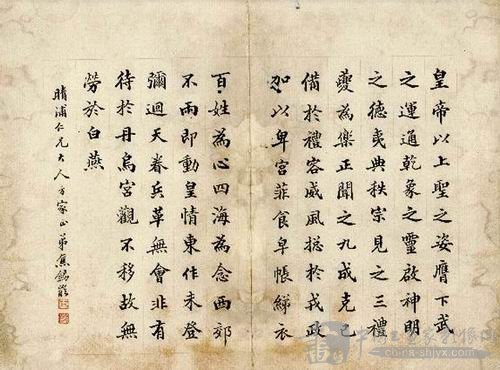 皇帝以上聖之姿膺下武
之運通乾象之靈啟神明
之德夷典秩宗見之三禮
夔為樂正聞之九成克己
備於禮容威風揔於戎政
加以卑宮菲食皁帳綈衣
百姓為心四海為念西郊
不雨即動皇情東作未登
彌迴天眷兵革無會非有
待於丹烏宮觀不移故無
勞於白燕
晴浦仁兄大人方家正弟焦錫齡